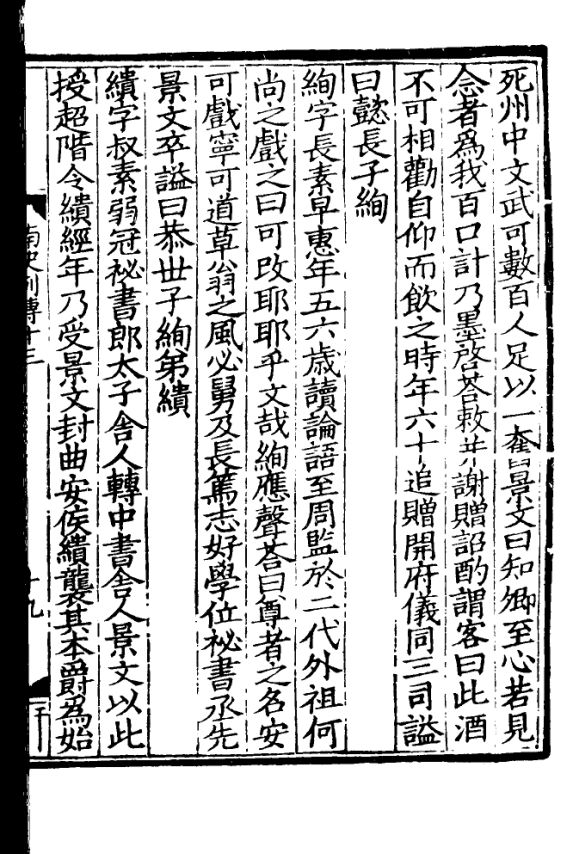 死州中文武可數百人足以一奮景文曰知卿至心若見
念者爲我百口計乃墨啓荅敕并謝贈詔酌謂客曰此酒
不可相勸自仰而飲之時年六十追贈開府儀同三司謚
曰懿長子絢
絢字長素早惠年五六歲讀論語至周監於二代外祖何
尚之戲之曰可改耶耶乎文哉絢應聲荅曰尊者之名安
可戲寧可道草翁之風必舅及長篤志好學位祕書丞先
景文卒謚曰恭世子絢弟繢
繢字叔素弱冠祕書郎太子舍人轉中書舍人景文以此
授超階令繢經年乃受景文封曲安侯繢襲其本爵爲始
南史列傳十三
十九